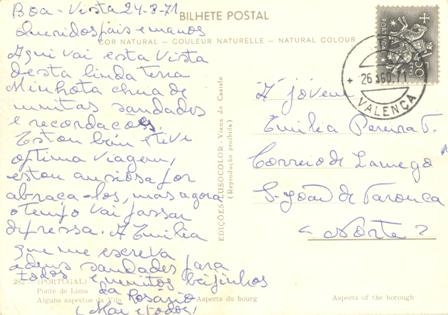 Boa-Vista 24-8-71
BILHETE POSTAL
Queridos pais e manos
COR NATURAL - COULEUR NATURELLE - NATURAL COLOUR
Aqui vai esta Vista
desta linda terra
Minhota cheia de
muitas saudades
e recordações.
Estou bem tive
optima viagem,
estou anciosa por
abraça-los, mas agora
o tempo vai passar
depressa. A Emilia
que me escreva
adeus saudades para
todos muitos beijinhos
da Rosario
(Mai e todos)
(PORTUGAL)
Ponte de Lima
Alguns aspectos da Vila
Aspects du bourg
Aspects of the borough
EDIÇÕES LUSOCOLOR - Viana do Castelo
(Reprodução proibida)
VALENÇA
A jovem
Emilia Pereira T.
Correio de Lamego
S. João de Tarouca
<Norte>